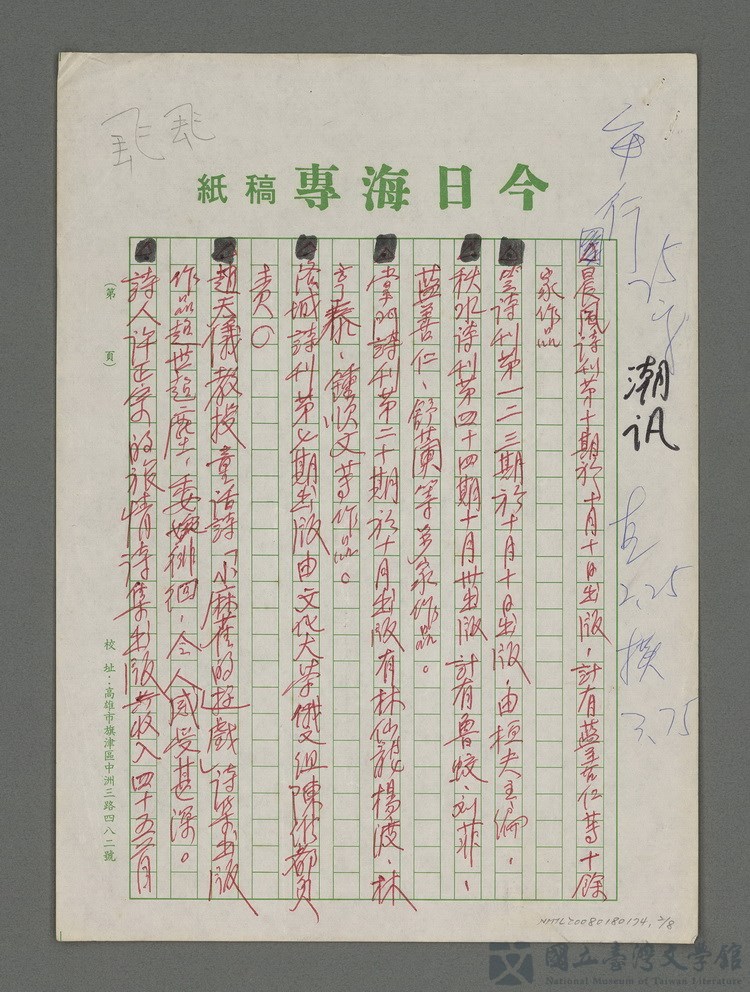 今日海專稿紙
潮訊
晨風詩刊第十期於十月十日出版，計有藍善仁等十餘
家作品
笠詩刊第一二三期於十月十日出版，由桓夫主編，
秋水詩刊第四十四期十月廿出版計有魯蛟、刘菲、
藍善仁、舒蘭等多家作品。
掌門詩刊第二十期於十月出版有林仙龍、楊渡、林
亨泰、鍾順文等作品。
詩刊第七期出版由文化大學俄文組陳都負
責。
趙天儀教授童話詩「小麻雀的遊戲」詩集出版
作品超世超塵，委婉徘徊，令人感受甚深。
詩人許正宗的旅情詩集出版共收入四十五首
（第 頁）
校址：高雄市旗津區中洲三路四八二號
2.25
3.75
NMTL20080180174, 2/8
國立臺灣文學館
National Museum of Taiwan Literature